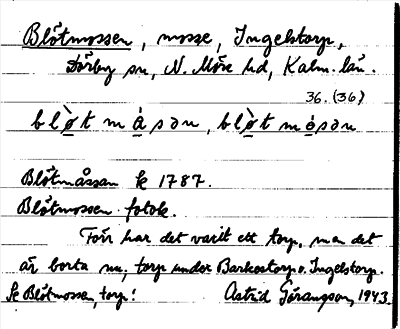 Blötmossen, mosse, Ingelstorp,
Dörby sn, N. Möre hd, Kalm. län.
36. (36)
blø̀t måsən, bløt mòsən
Blötmåssan k 1787.
Blötmossen fotok.
Förr har det varit ett torp, men det
är borta nu, torp under Barkestorp o. Ingelstorp.
Se Blötmossen, torp! Astrid Göransson, 1943.